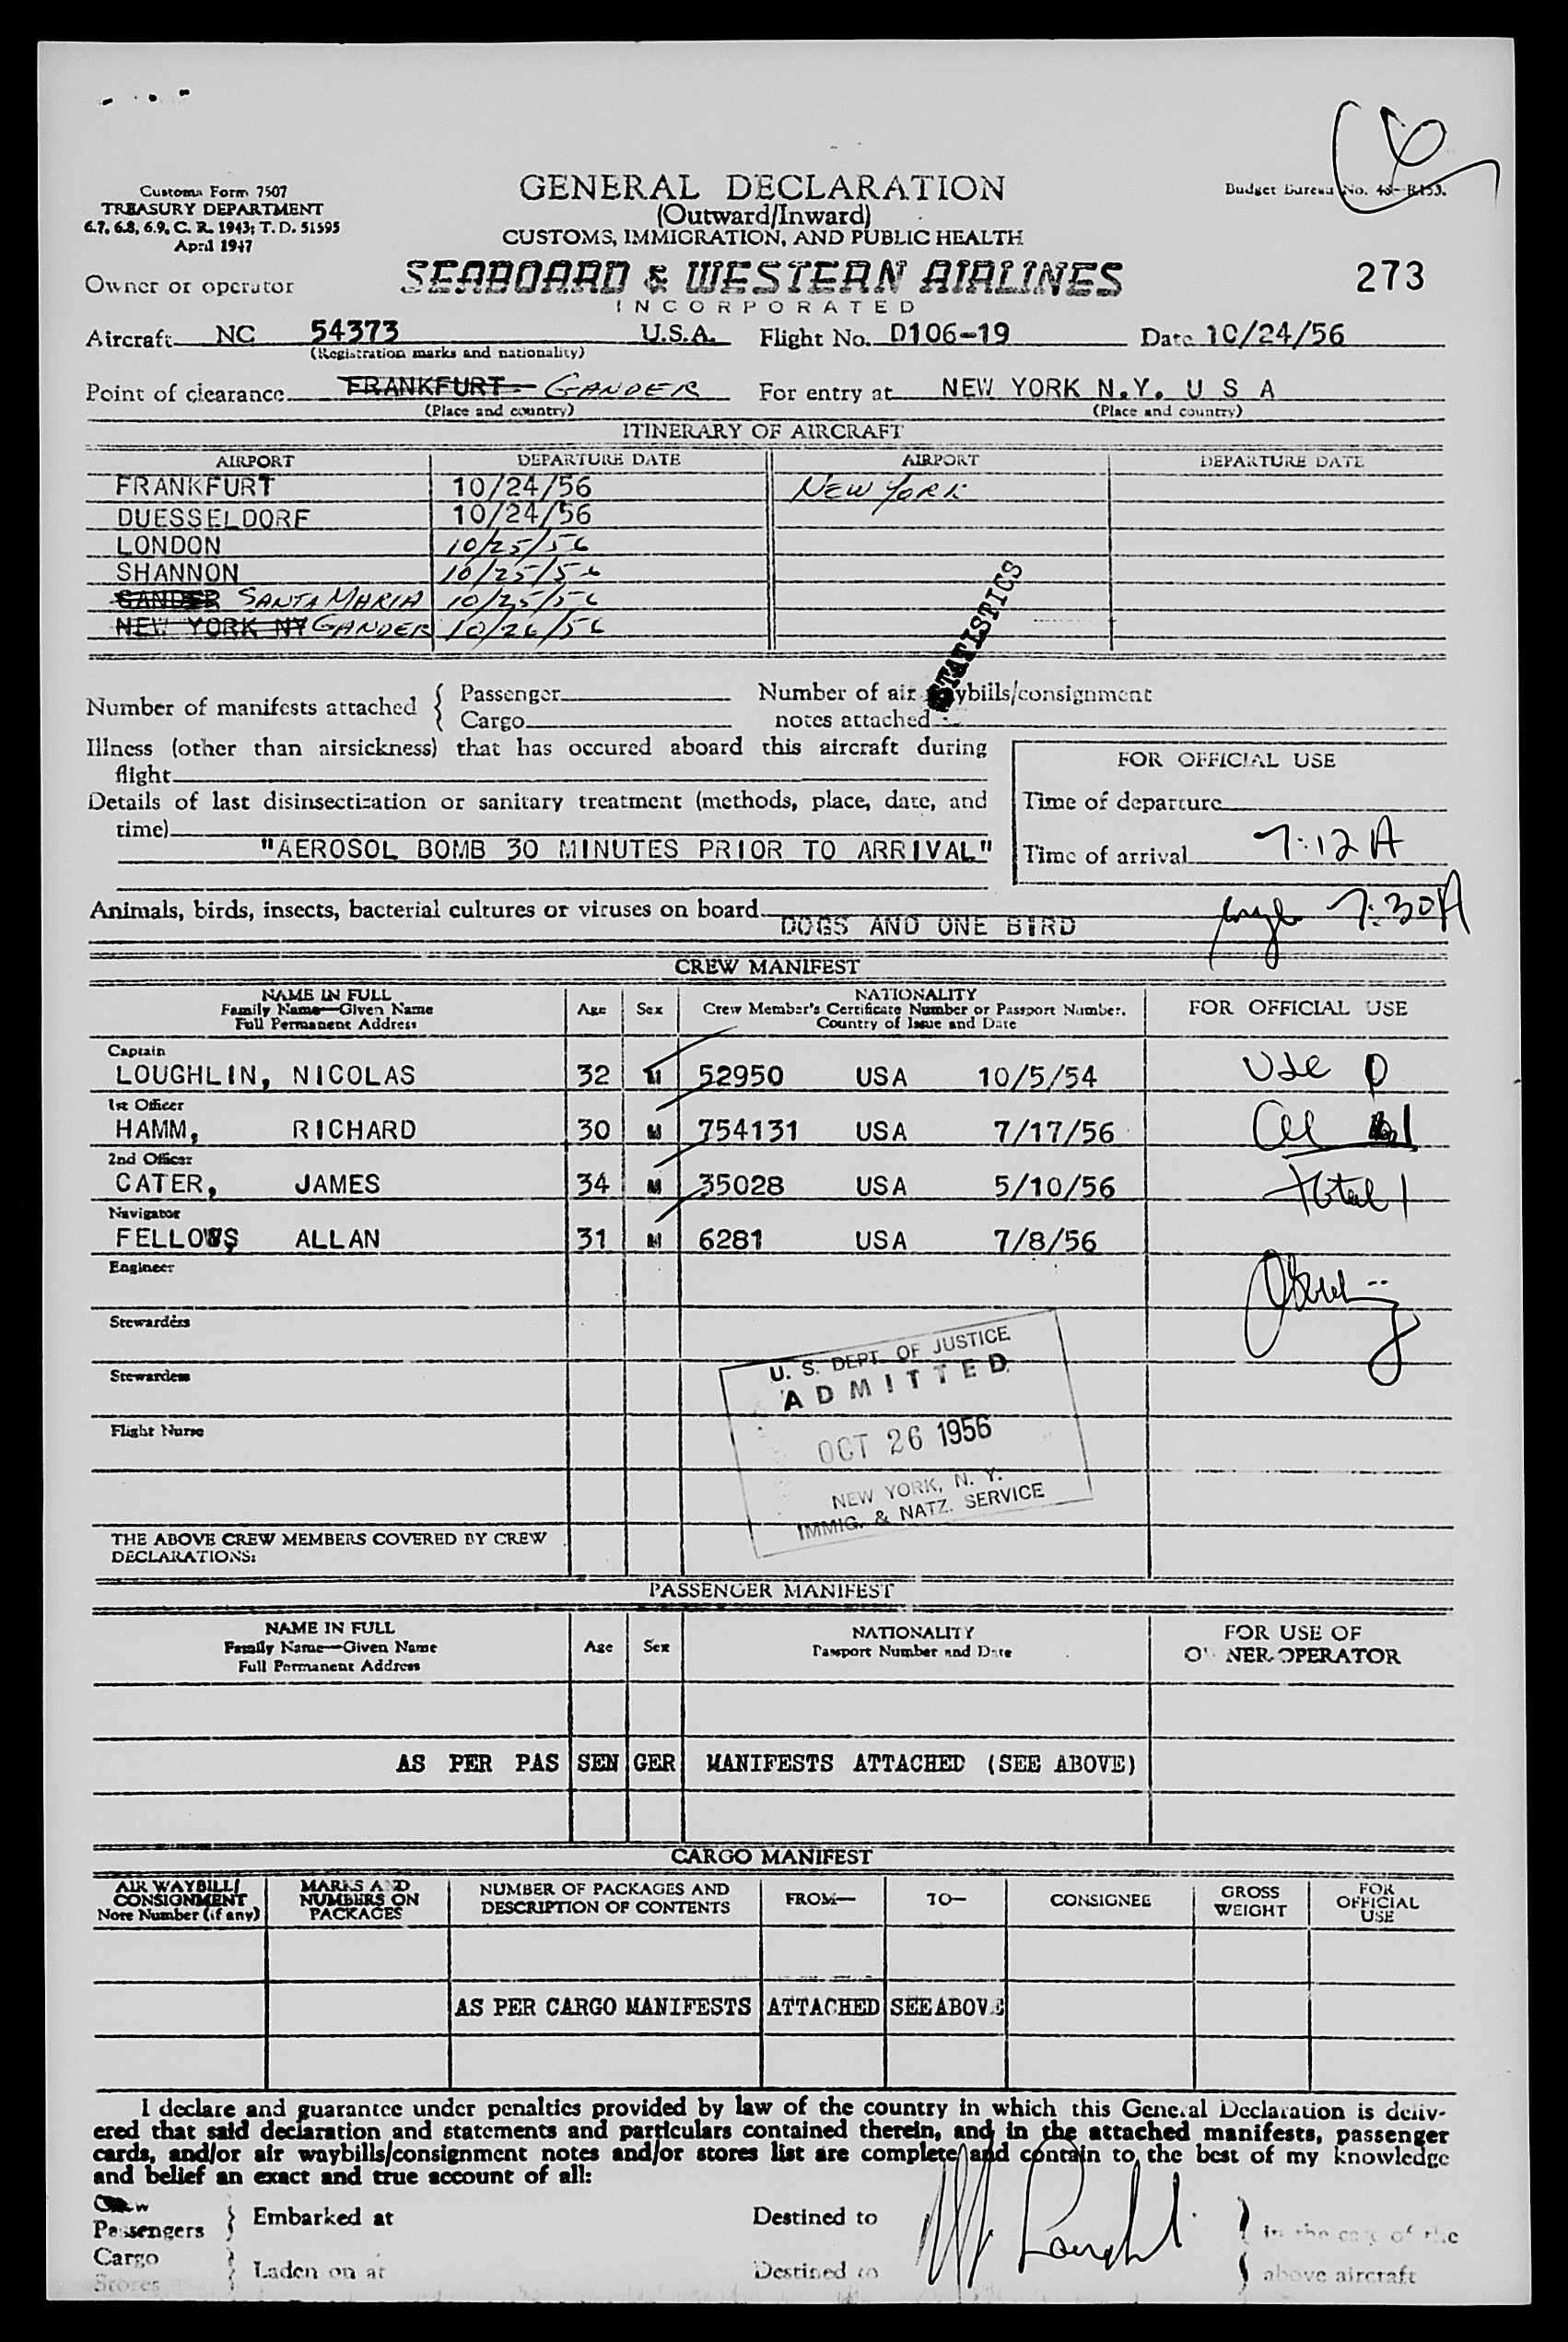 Customs Form 7507
TREASURY DEPARTMENT
6.7, 6.8, 6.9, C. R. 1943; T. D. 51595
April 1947
GENERAL DECLARATION
(Outward/Inward)
CUSTOMS, IMMIGRATION, AND PUBLIC HEALTH
Budget Bureau No. 43-R153.
Owner or operator
SEABOARD & WESTERN AIRLINES
INCORPORATED
273
Aircraft NC 54373 U.S.A. Flight No. D106-19 Date 10/24/56
(Registration marks and nationality)
Point of clearance FRANKFURT - GANDER For entry at NEW YORK N.Y. U S A
(Place and country) (Place and country)
ITINERARY OF AIRCRAFT
AIRPORT DEPARTURE DATE AIRPORT DEPARTURE DATE
FRANKFURT 10/24/56 NEW YORK
DUESSELDORF 10/24/56
LONDON 10/25/56
SHANNON 10/25/56
GANDER SANTA MARIA 10/25/56
NEW YORK NY GANDER 10/26/56
STATISTICS
Number of manifests attached { Passenger
Cargo
Number of air ybills/consignment
notes attached
Illness (other than airsickness) that has occured aboard this aircraft during
flight
Details of last disinsectization or sanitary treatment (methods, place, date, and
time)
"AEROSOL BOMB 30 MINUTES PRIOR TO ARRIVAL"
FOR OFFICIAL USE
Time of departure
Time of arrival 7:12 A
Animals, birds, insects, bacterial cultures or viruses on board
DOGS AND ONE BIRD
7:30A
CREW MANIFEST
NAME IN FULL
Family Name—Given Name
Full Permanent Address
Age Sex
NATIONALITY
Crew Member's Certificate Number or Passport Number.
Country of Issue and Date
FOR OFFICIAL USE
Captain
LOUGHLIN, NICOLAS 32 M 52950 USA 10/5/54
1st Officer
HAMM, RICHARD 30 M 754131 USA 7/17/56
2nd Officer
CATER, JAMES 34 M 35028 USA 5/10/56
Total 1
Navigator
FELLOWS, ALLAN 31 M 6281 USA 7/8/56
Engineer
Stewardess
Stewardess
Flight Nurse
U. S. DEPT. OF JUSTICE
ADMITTED
OCT 26 1956
NEW YORK, N. Y.
IMMIG. & NATZ. SERVICE
THE ABOVE CREW MEMBERS COVERED BY CREW
DECLARATIONS:
PASSENGER MANIFEST
NAME IN FULL
Family Name—Given Name
Full Permanent Address
Age Sex
NATIONALITY
Passport Number and Date
FOR USE OF
O NER-OPERATOR
AS PER PAS SEN GER MANIFESTS ATTACHED (SEE ABOVE)
CARGO MANIFEST
AIR WAYBILL/
CONSIGNMENT
Note Number (if any)
MARKS AND
NUMBERS ON
PACKAGES
NUMBER OF PACKAGES AND
DESCRIPTION OF CONTENTS
FROM— TO— CONSIGNEE
GROSS
WEIGHT
FOR
OFFICIAL
USE
AS PER CARGO MANIFESTS ATTACHED SEE ABOVE
I declare and guarantee under penalties provided by law of the country in which this General Declaration is deliv-
ered that said declaration and statements and particulars contained therein, and in the attached manifests, passenger
cards, and/or air waybills/consignment notes and/or stores list are complete and contain to the best of my knowledge
and belief an exact and true account of all:
Crew
Passengers } Embarked at Destined to } in the case of the
Cargo
Stores } Laden on at Destined to } above aircraft